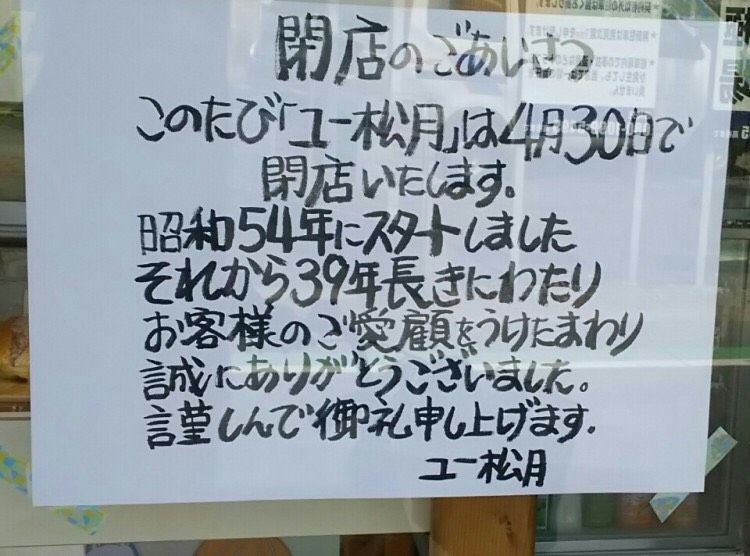 閉店のごあいさつ
このたび「ユー松月」は4月30日で
閉店いたします。
昭和54年にスタートしました
それから39年長きにわたり
お客様のご愛顧をうけたまわり
誠にありがとうございました。
謹しんで御礼申し上げます.
ユー松月